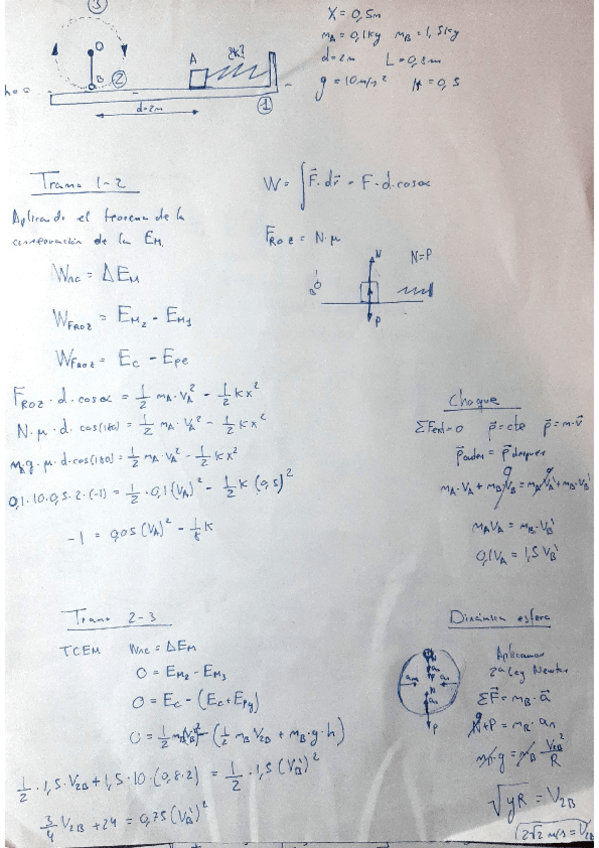 ③
X = 0,5m
m_A = 0,1kg m_B = 1,5kg
d = 2m L = 0,8m
g = 10 m/s² μ = 0,5
O
A
B
②
①
d=2m
Tramo 1-2
Aplicando el teorema de la
conservación de la E_M
W_NC = ΔE_M
W_FROZ = E_M2 - E_M1
W_FROZ = E_C - E_Pe
F_ROZ · d · cosα = 1/2 m_A · V_A² - 1/2 K x²
N · μ · d · cos(180) = 1/2 m_A · V_A² - 1/2 K x²
m_A g · μ · d · cos(180) = 1/2 m_A · V_A² - 1/2 K x²
0,1 · 10 · 0,5 · 2 · (-1) = 1/2 · 0,1 (V_A)² - 1/2 K (0,5)²
-1 = 0,05 (V_A)² - 1/8 K
W = ∫ F⃗ · dr⃗ = F · d · cosα
F_ROZ = N · μ
N
N=P
B
P
Choque
ΣFext=0 p⃗=cte p⃗=m·v⃗
p⃗antes = p⃗despues
m_A · V_A + m_B V_B = m_A V_A' + m_B · V_B'
m_A V_A = m_B · V_B'
0,1 V_A = 1,5 V_B'
Tramo 2-3
TCEM W_NC = ΔE_M
0 = E_M2 - E_M3
0 = E_C - (E_C + E_Pg)
0 = 1/2 m_B (V_B')² - (1/2 m_B V_2B + m_B · g · h)
1/2 · 1,5 · V_2B + 1,5 · 10 · (0,8·2) = 1/2 · 1,5 (V_B')²
3/4 V_2B + 24 = 0,75 (V_B')²
Dinámica esfera
Aplicamos
2ª Ley Newton
ΣF⃗ = m_B · a⃗
N + P = m_B · a_n
m_B · g = m_B V_2B²/R
√gR = V_2B
2√2 m/s = V_2B